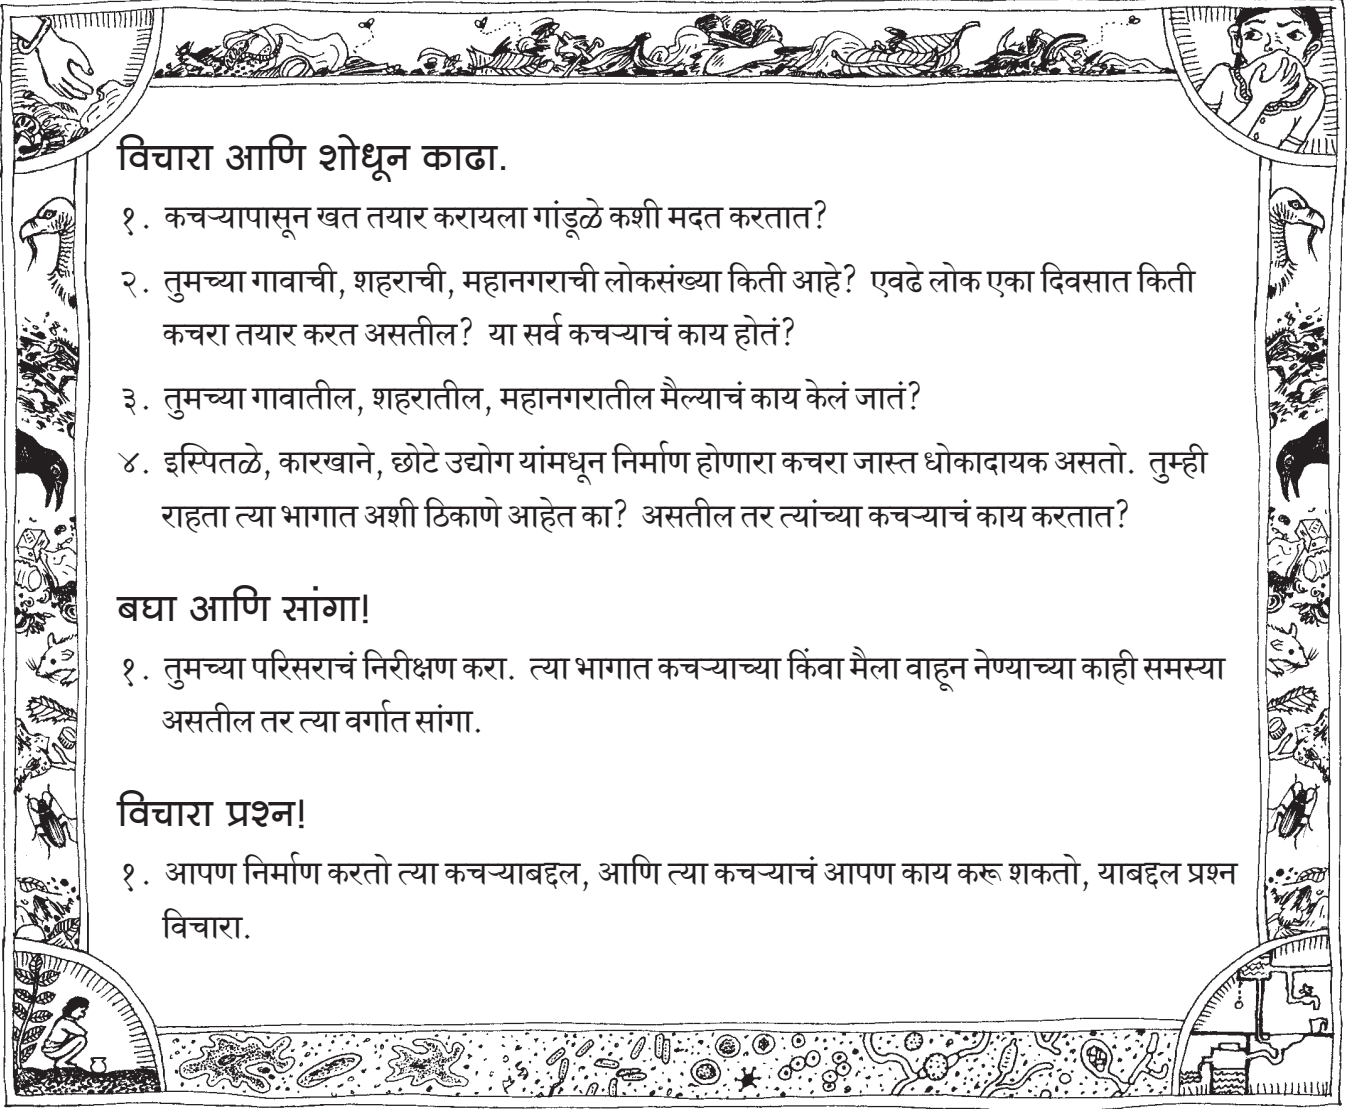 विचारा आणि शोधून काढा.
१. कचऱ्यापासून खत तयार करायला गांडूळे कशी मदत करतात?
२. तुमच्या गावाची, शहराची, महानगराची लोकसंख्या किती आहे? एवढे लोक एका दिवसात किती
कचरा तयार करत असतील? या सर्व कचऱ्याचं काय होतं?
३. तुमच्या गावातील, शहरातील, महानगरातील मैल्याचं काय केलं जातं?
४. इस्पितळे, कारखाने, छोटे उद्योग यांमधून निर्माण होणारा कचरा जास्त धोकादायक असतो. तुम्ही
राहता त्या भागात अशी ठिकाणे आहेत का? असतील तर त्यांच्या कचऱ्याचं काय करतात?
बघा आणि सांगा!
१. तुमच्या परिसराचं निरीक्षण करा. त्या भागात कचऱ्याच्या किंवा मैला वाहून नेण्याच्या काही समस्या
असतील तर त्या वर्गात सांगा.
विचारा प्रश्न!
१. आपण निर्माण करतो त्या कचऱ्याबद्दल, आणि त्या कचऱ्याचं आपण काय करू शकतो, याबद्दल प्रश्न
विचारा.